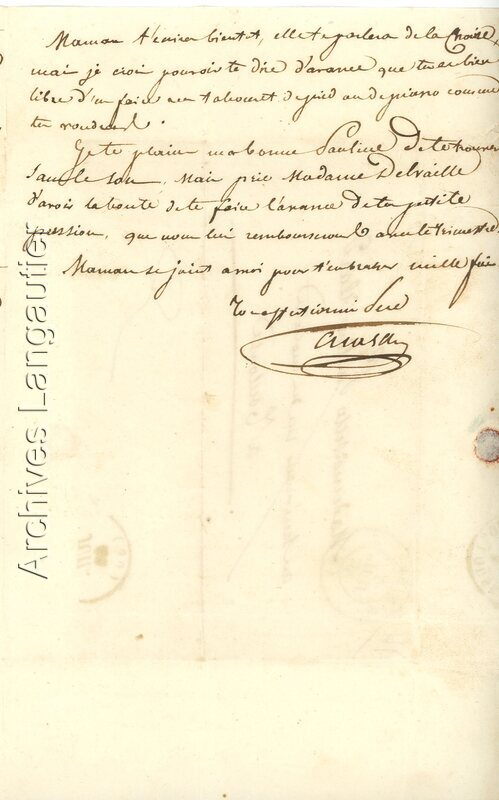 Maman t'ecrira bientot, elle te parlera de la Chaise
mais je crois pouvoir te dire d'avance que tu es bien
libre d'en faire un tabouret de pied ou de piano comme
tu voudras.
Je te plains ma bonne Pauline de te trouver
sans le sou, mais prie Madame Delvaille
d'avoir la bonté de te faire l'avance de ta petite
pension, que nous lui rembourserons avec le trimestre.
Maman se joint a moi pour t'embrasser mille fois
Ton affectionné Père
Archives Langautier